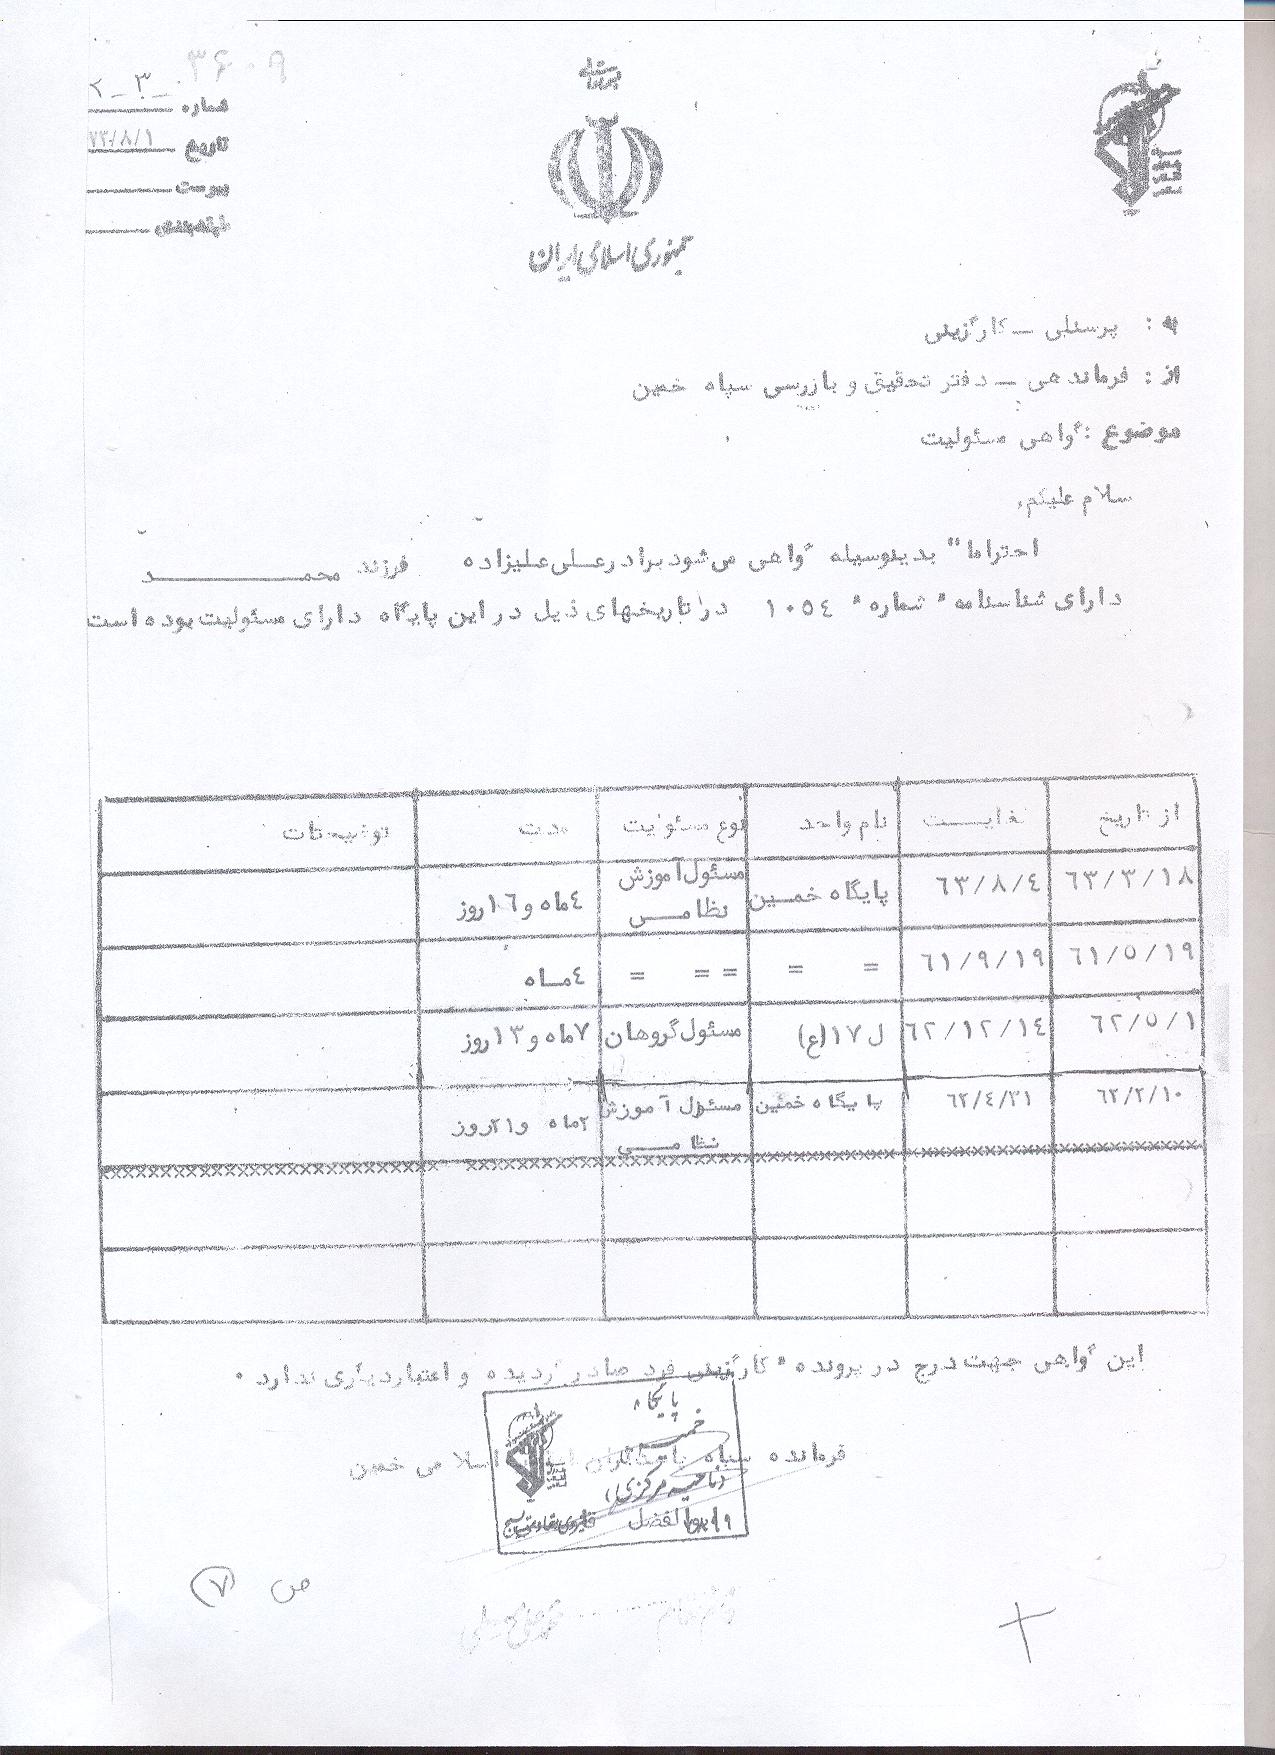 ۳۶۰۹
شماره ۳_۲
تاریخ ۷۳/۸/۱
پیوست
طبقه‌بندی
بسمه‌تعالی
جمهوری اسلامی ایران
به : پرسنلی _ کارگزینی
از : فرماندهی _ دفتر تحقیق و بازرسی سپاه خمین
موضوع : گواهی مسئولیت
سلام علیکم،
احتراما" بدینوسیله گواهی می‌شود برادر علی علیزاده فرزند محمد
دارای شناسنامه شماره ۱۰۵٤ در تاریخهای ذیل در این پایگاه دارای مسئولیت بوده است
از تاریخ لغایت نام واحد نوع مسئولیت مدت توضیحات
٦۳/۳/۱۸ ٦۳/۸/٤ پایگاه خمین مسئول آموزش نظامی ٤ماه و ۱٦روز
٦۱/۵/۱۹ ٦۱/۹/۱۹ = = = = = ٤ماه
٦۲/۵/۱ ٦۲/۱۲/۱٤ ل ۱۷(ع) مسئول گروهان ۷ماه و ۱۳روز
٦۲/۲/۱۰ ٦۲/٤/۳۱ پایگاه خمین مسئول آموزش نظامی ۲ماه و ۲۱روز
این گواهی جهت درج در پرونده کارگزینی فرد صادر گردیده و اعتبار دیگری ندارد .
فرمانده سپاه پاسداران اسلامی خمین
پایگاه
خمین
(ناحیه مرکزی)
ابوالفضل
ص ۷